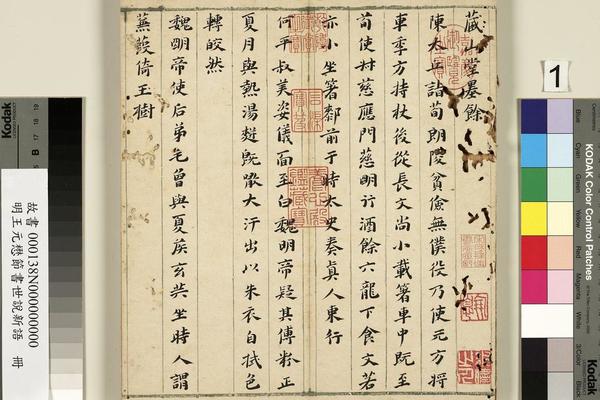 藏山堂墨餘
陳太丘詣荀朗陵貧儉無僕役乃使元方將
車季方持杖後從長文尚小載箸車中既至
荀使叔慈應門慈明行酒餘六龍下食文若
亦小坐箸䣛前于時太史奏真人東行
何平叔美姿儀面至白魏明帝疑其傅粉正
夏月與熱湯麪既噉大汗出以朱衣自拭色
轉皎然
魏明帝使后弟毛曾與夏矦玄共坐時人謂
蒹葭倚玉樹
故書 000138N000000000
明王元懋節書世說新語 冊
1
Kodak
KODAK Color Control Patches
Blue
Cyan
Green
Yellow
Red
Magenta
White
3/Color
Black
B 17 18 19